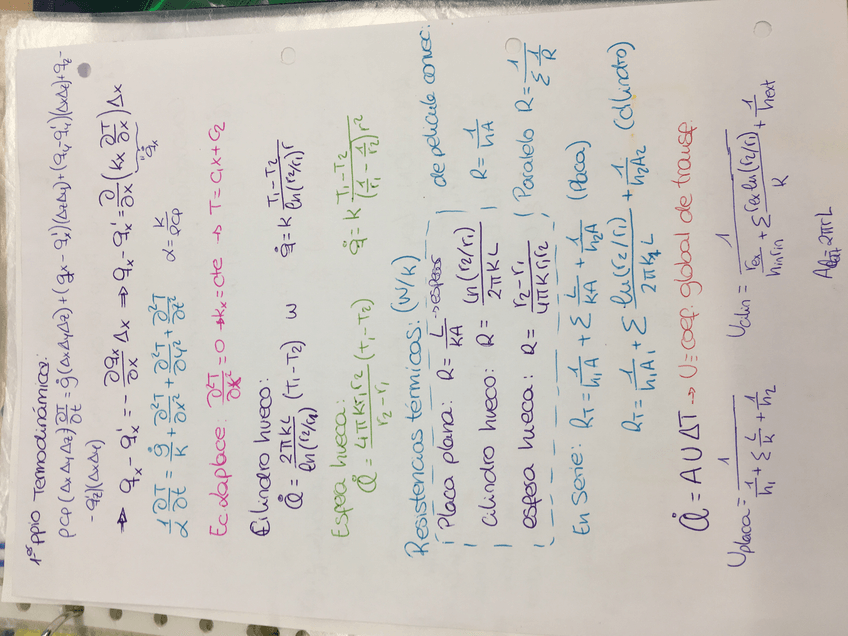 1º ppio Termodinámica:
ρCp (Δx Δy Δz) ∂T/∂t = ġ (Δx Δy Δz) + (qx - qx')(Δz Δy) + (qy - qy')(Δx Δz) + qz -
- qz')(Δx Δy)
⇒ qx - qx' = - ∂qx/∂x Δx ⇒ qx - qx' = ∂/∂x (kx ∂T/∂x) Δx
"qx
1/α ∂T/∂t = ġ/K + ∂²T/∂x² + ∂²T/∂y² + ∂²T/∂z² α = K/ρCp
Ec Laplace: ∂²T/∂x² = 0 → kx = cte → T = C1x + C2
Cilindro hueco:
Q̇ = 2πKL/ln(r2/r1) (T1 - T2) W q̇ = K (T1 - T2)/(ln(r2/r1) r)
Esfera hueca:
Q̇ = 4πK r1 r2/(r2 - r1) (T1 - T2) q̇ = K (T1 - T2)/((1/r1 - 1/r2) r²)
Resistencias térmicas: (W/K)
Placa plana: R = L/KA → espesor de película convec:
Cilindro hueco: R = ln(r2/r1)/2πKL R = 1/hA
esfera hueca: R = (r2 - r1)/4πK r1 r2 Paralelo R = 1/Σ 1/R
En serie: RT = 1/h1A + Σ L/KA + 1/h2A (Placa)
RT = 1/h1A1 + Σ ln(r2/r1)/2πKL + 1/h2A2 (Cilindro)
Q̇ = A U ΔT → U = coef. global de transf.
Uplaca = 1/(1/h1 + Σ L/K + 1/h2) Ucilin = 1/(rex/hin rin + Σ rex ln(r2/r1)/K + 1/hext)
= 2πrL